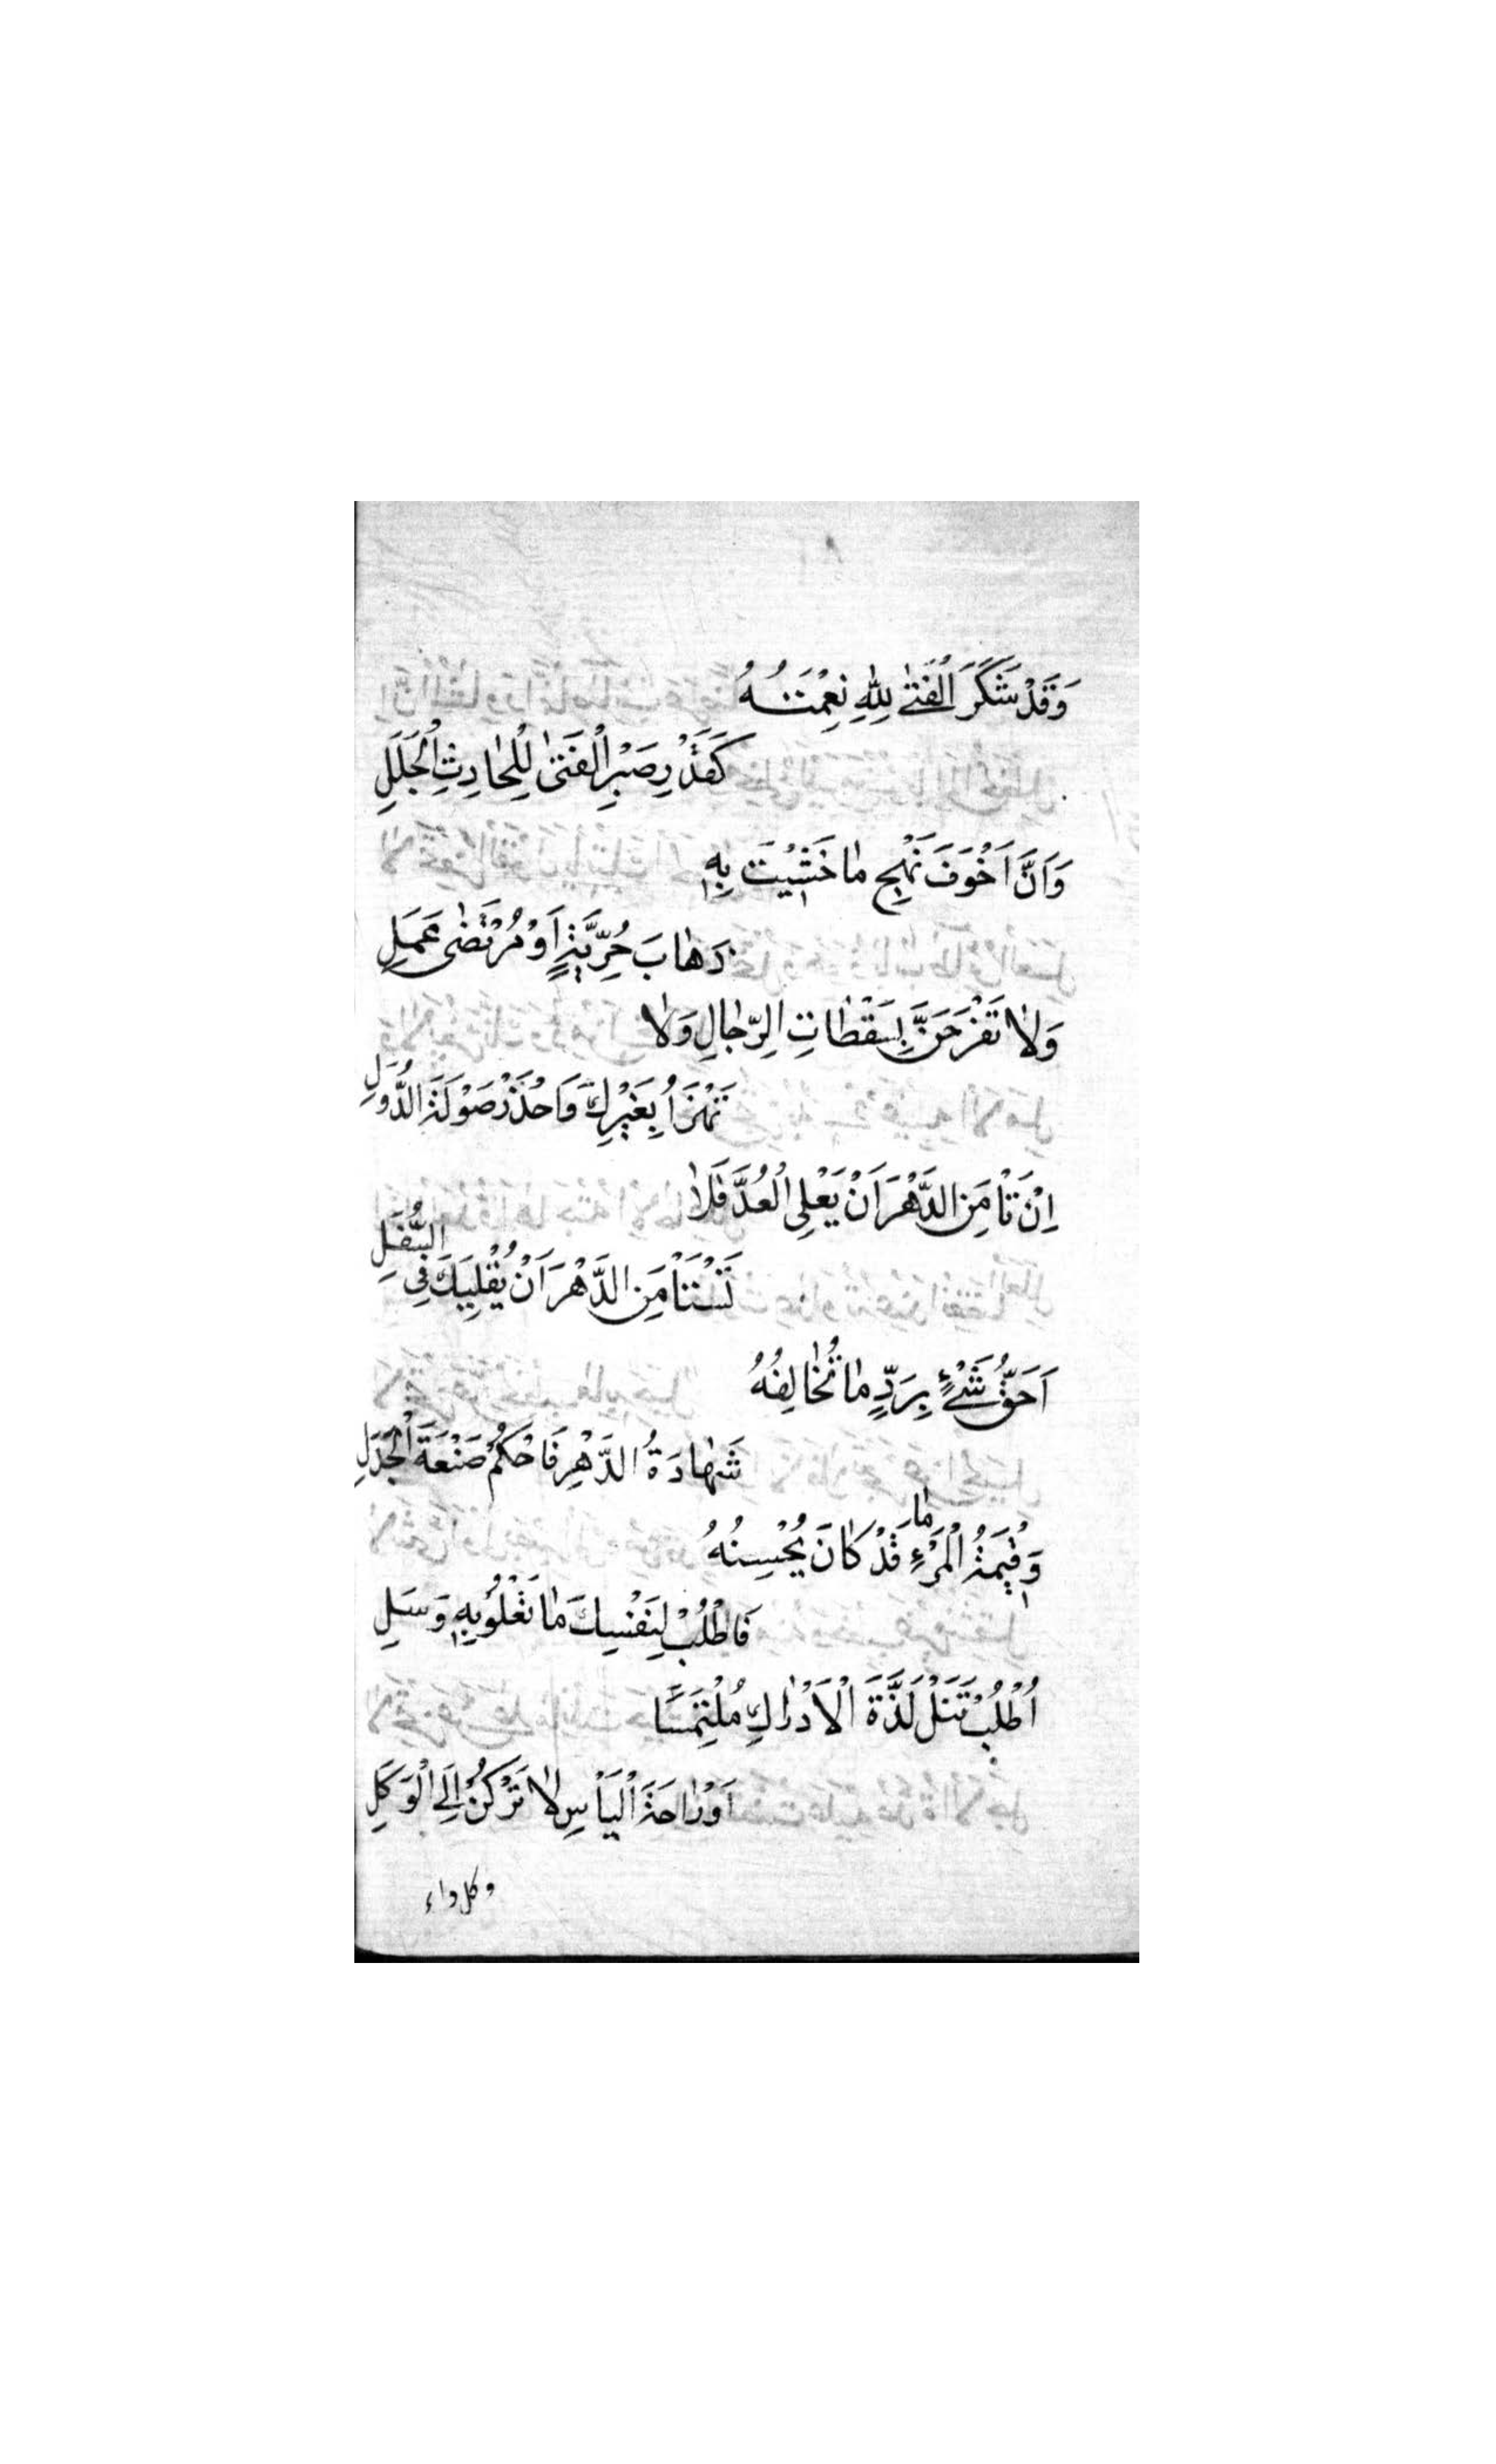 وَقَدْ شَكَرَ الْفَتٰى لِلّٰهِ نِعْمَتَهُ
كَقَدْرِ صَبْرِ الْفَتٰى لِلْحَادِثِ الْجَلَلِ
وَاَنَّ اَخْوَفَ نَهْجٍ مٰا خَشِيْتَ بِهِ
ذَهٰابَ حُرِّيَّةٍ اَوْ مُرْتَضٰى عَمَلِ
وَلٰا تَفْرَحَنَّ بِسَقْطٰاتِ الرِّجٰالِ وَلٰا
تَهْزَأْ بِغَيْرِكَ وَاحْذَرْ صَوْلَةَ الدُّوَلِ
اِنْ تَأْمَنِ الدَّهْرَ اَنْ يَعْلِى الْعُدَّ فَلٰا
تَسْتَأْمَنِ الدَّهْرَ اَنْ يُقْلِيَكَ فِي السُّفَلِ
اَحَقُّ شَيْءٍ بِرَدٍّ مٰا تُخٰالِفُهُ
شَهٰادَةُ الدَّهْرِ فَاحْكُمْ صَنْعَةَ الْجَدَلِ
وَقِيمَةُ الْمَرْءِ مٰا قَدْ كٰانَ يُحْسِنُهُ
فَاطْلُبْ لِنَفْسِكَ مٰا تَغْلُو بِهِ وَسَلِ
اُطْلُبْ تَنَلْ لَذَّةَ الْاَدْرٰاكِ مُلْتَمِسًا
اَوْ رٰاحَةَ الْيَأْسِ لٰا تَرْكَنْ اِلَى الْوَكَلِ
وكل داء